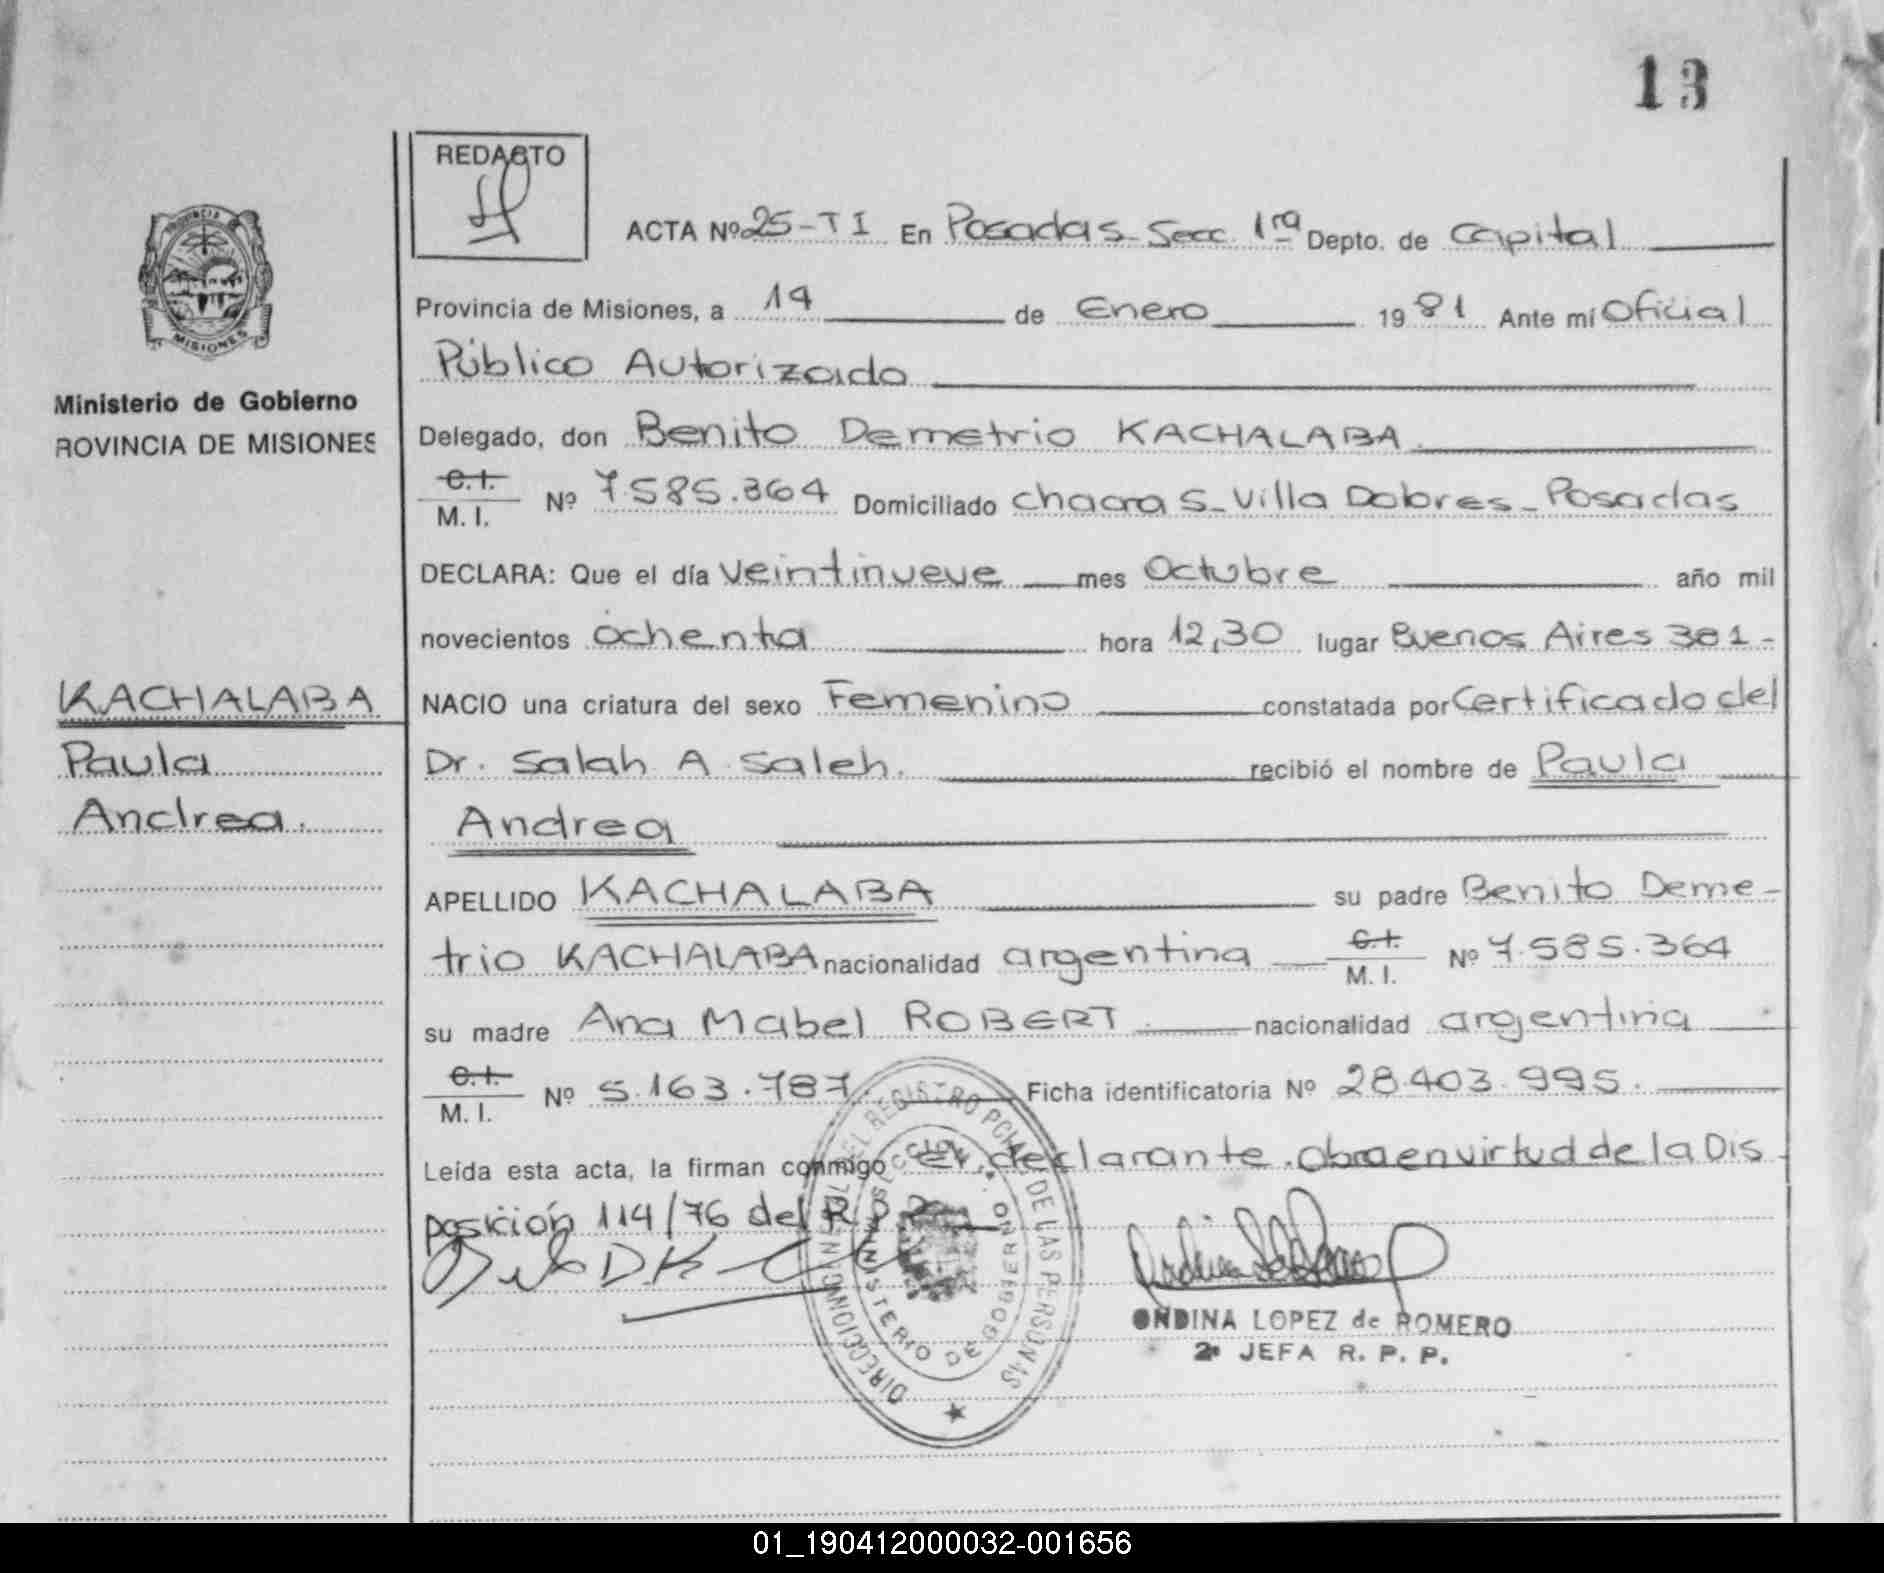 13
REDACTO
ACTA Nº 25-TI En Posadas - Secc. 1ra Depto. de Capital
PROVINCIA
MISIONES
Provincia de Misiones, a 14 de Enero 1981 Ante mí Oficial
Público Autorizado
Ministerio de Gobierno
ROVINCIA DE MISIONES
Delegado, don Benito Demetrio KACHALABA
C.I.
M. I. Nº 7.585.364 Domiciliado chacra 5 - Villa Dolores - Posadas
DECLARA: Que el día veintinueve mes Octubre año mil
novecientos ochenta hora 12,30 lugar Buenos Aires 381 -
KACHALABA
Paula
Andrea.
NACIO una criatura del sexo Femenino constatada por Certificado del
Dr. Salah A. Saleh. recibió el nombre de Paula
Andrea
APELLIDO KACHALABA su padre Benito Deme-
trio KACHALABA nacionalidad argentina C.I. M. I. Nº 7.585.364
su madre Ana Mabel ROBERT nacionalidad argentina
C.I.
M. I. Nº 5.163.787 Ficha identificatoria Nº 28.403.995.
Leída esta acta, la firman conmigo el declarante. Obra en virtud de la Dis
posición 114/76 del R.P.P.
DIRECCION GENERAL DEL REGISTRO PCIAL DE LAS PERSONAS
MINISTERIO DE GOBIERNO
ONDINA LOPEZ de ROMERO
2ª JEFA R. P. P.
01_190412000032-001656